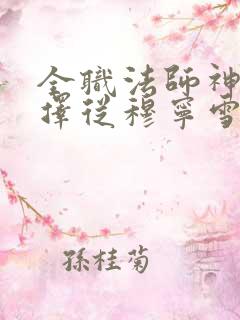 全職法師神
擇從穆寧雪
孫桂菊